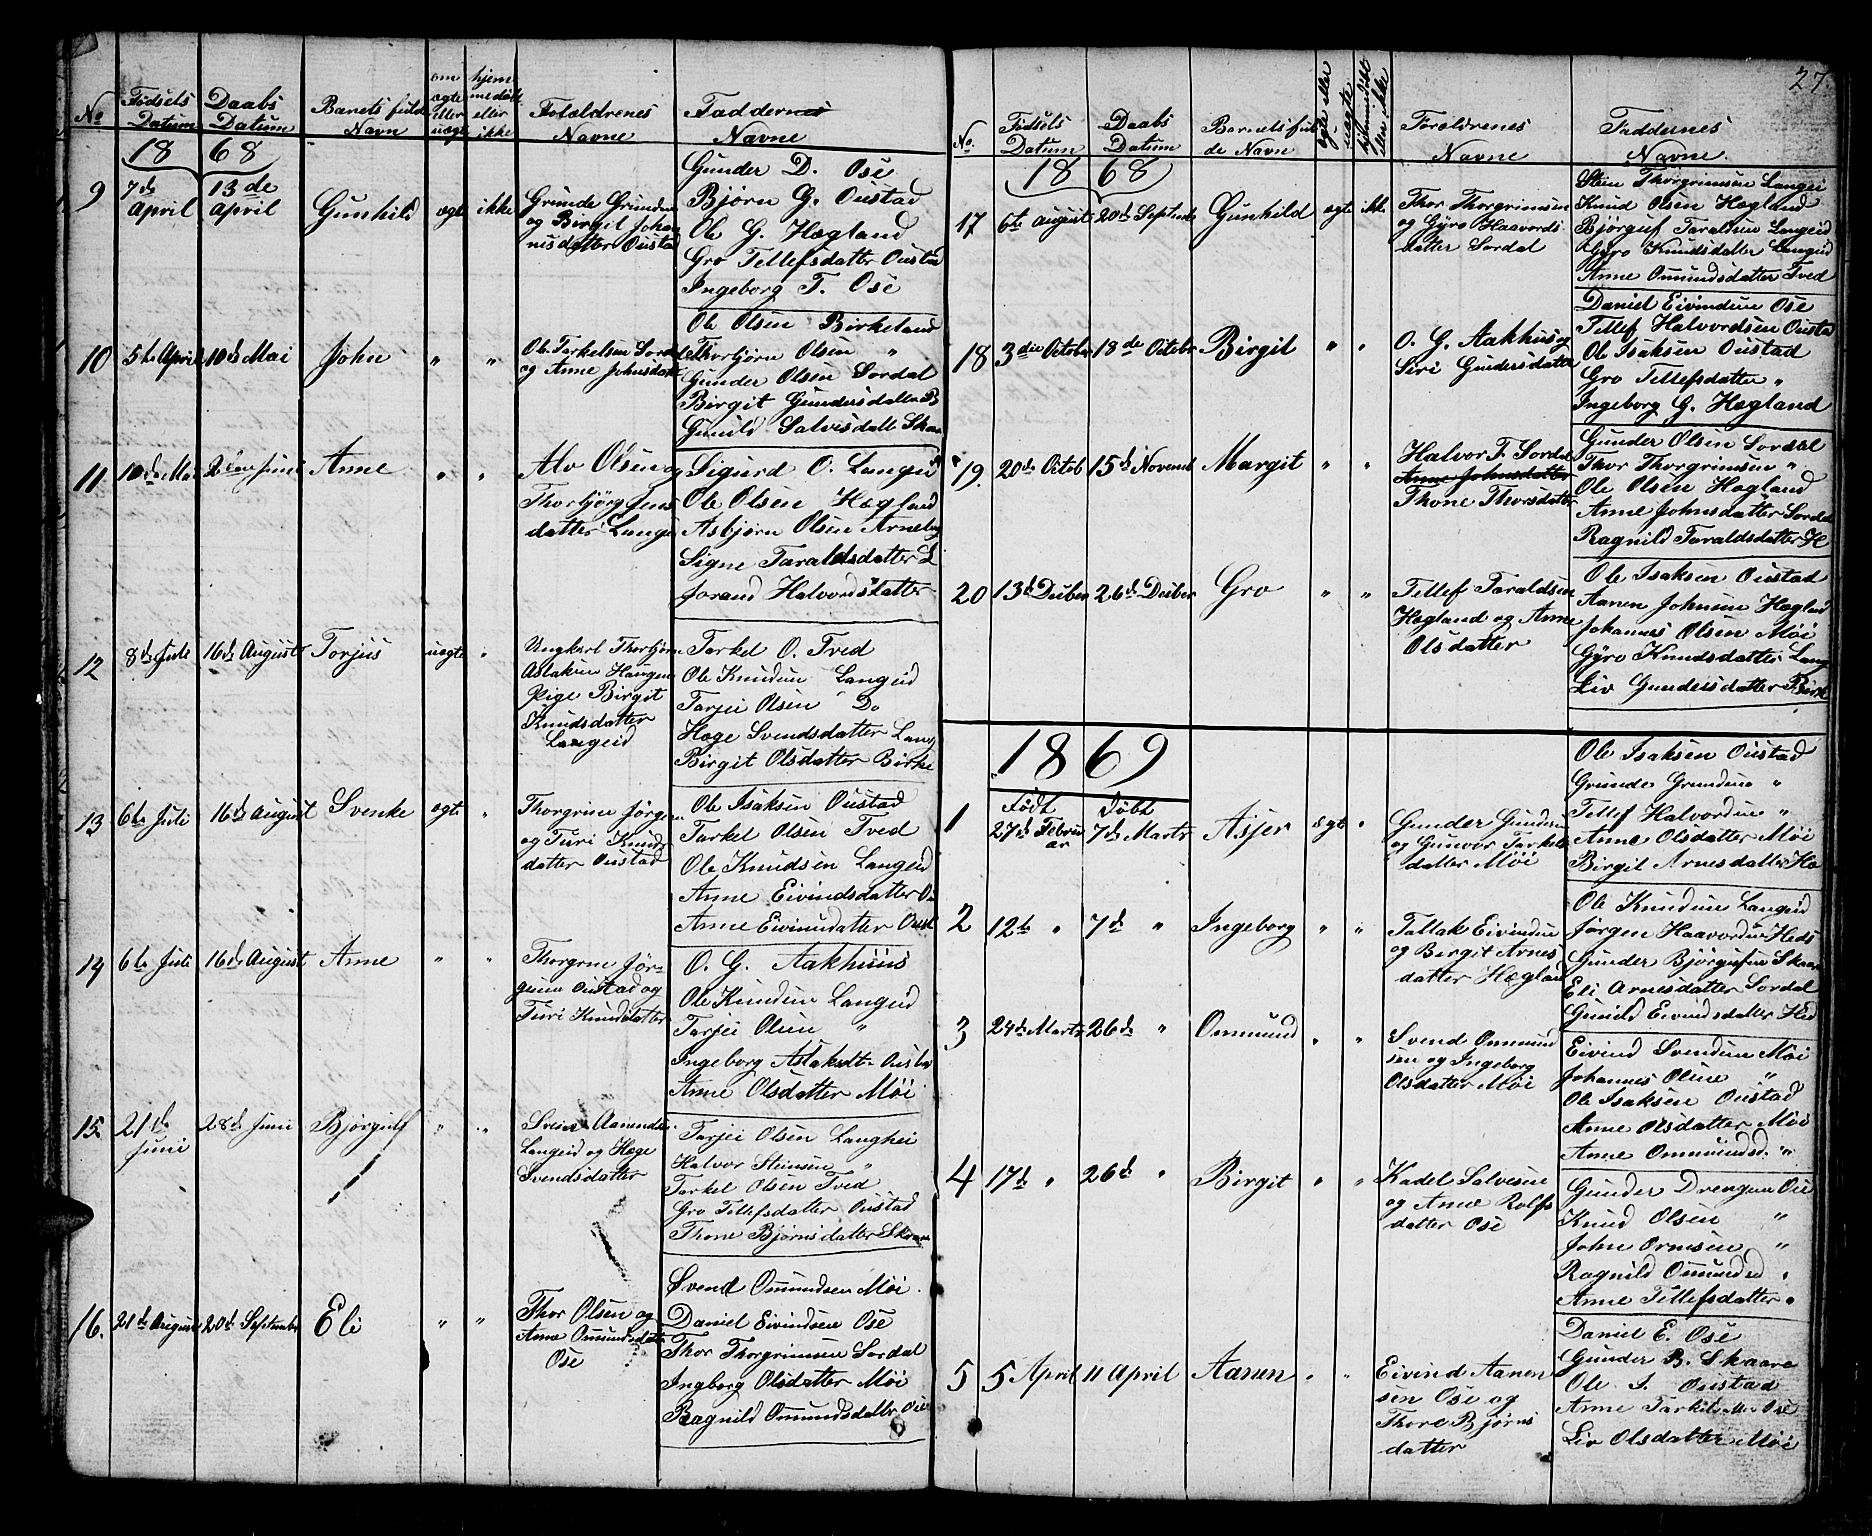 No
Fødsels Datum
Daabs Datum
Barnets fulde Navn
om ægte eller uægte
hjemmedøbt eller ikke
Forældrenes Navne
Faddernes Navne
1868
9
7de April
13de April
Gunhild
ægte
ikke
Grunde Grundesen
og Birgit Johan
nisdatter Oustad
Gunder D. Ose
Bjørn G. Oustad
Ole G. Hægland
Gro Tellefsdatter Oustad
Ingeborg T. Ose
10
5te April
10de Mai
John
"
"
Ole Terkelsen Sordal
og Anne Johnsdatter
Ole Olsen Birkeland
Thorbjørn Olsen "
Gunder Olsen Sordal
Birgit Gundersdatter B
Gunild Salvisdatt Skaar
11
10de Mai
2den Juni
Anne
"
"
Alv Olsen og
Thorbjørg Jens
datter Lange
Sigurd O. Langei
Ole Olsen Hægland
Asbjørn Olsen Arneberg
Signe Taraldsdatter L
Jorand Halvordsdatter
12
8de Juli
16de August
Torjus
uægte
"
Ungkarl Thorbjørn
Aslaksen Haugen
Pige Birgit
Knudsdatter
Langeid
Tarkel O. Tved
Ole Knudsen Langeid
Tarjei Olsen Do
Hæge Svendsdatter Lang
Birgit Olsdatter Birke
13
6te Juli
16de August
Svenke
ægte
"
Thorgrim Jørgen
og Turi Knuds
datter Oustad
Ole Isaksen Oustad
Tarkel Olsen Tved
Ole Knudsen Langeid
Anne Eivindsdatter O
Anne Eivinsdatter Oust
14
6te Juli
16de August
Anne
"
"
Thorgrim Jør-
gensen Oustad og
Turi Knudsdatter
O. G. Aakhuus
Ole Knudsen Langeid
Tarjei Olsen "
Ingeborg Aslaksdt- Oustad
Anne Olsdatter Møi
15.
21de Juni
28de Juni
Bjørgulf
"
"
Svein Aanundsen
Langeid og Hæge
Svendsdatter
Tarjei Olsen Langhei
Halvor Steinsen "
Tarkel Olsen Tved
Gro Tellefsdatter Oustad
Thone Bjørnsdatter Skaare
16.
21de August
20de September
Eli
"
"
Thor Olsen og
Anne Omundsdatter
Ose
Svend Omundsen Møi
Daniel Eivindsen Ose
Thor Thorgrimsen Sordal
Ingborg Olsdatter Møi
Ragnild Omundsdatter Ose
27.
No.
Fødsels Datum
Daabs Datum
Barnets ful
de Navn
ægte eller uægte
hjemmedøbt eller ikke
Forældrenes Navne
Faddernes Navne.
1868
17
6te August
20de Septembr
Gunhild
ægte
ikke
Thor Thorgrimsen
og Gyro Haavords
datter Sordal
Stein Thorgrimsen Langei
Knud Olsen Hægland
Bjørguf Taraldsen Langeid
Gyro Knudsdatter Langeid
Anne Omundsdatter Tved
18
3die October
18de Octobr
Birgit
"
"
O. G. Aakhus og
Siri Gundersdatter
Daniel Eivindsen Ose
Tellef Halvordsen Oustad
Ole Isaksen Oustad
Gro Tellefsdatter "
Ingeborg G. Hægland
19.
20de Octob
15de Novemb
Margit
"
"
Halvor T. Sordal
Anne Johnsdatter
Thone Thorsdatter
Gunder Olsen Sordal
Thor Thorgrimsen "
Ole Olsen Hægland
Anne Johnsdatter Sordal
Ragnild Taraldsdatter H
20
13de Desber
26de Desber
Gro
"
"
Tellef Taraldsen
Hægland og Anne
Olsdatter
Ole Isaksen Oustad
Aanen Johnsen Hægland
Johannes Olsen Møi
Gyro Knudsdatter Lang
Liv Gundersdatter Birk
1869
Født
Døbt
1
27de Februar
7de Marts
Asjer
ægte
"
Gunder Gundersen
og Gunvor Tarkels
datter Møi
Ole Isaksen Oustad
Grunde Grundsen "
Tellef Halvordsen "
Anne Olsdatter Møi
Birgit Arnesdatter Hæ
2
12te "
7de "
Ingeborg
"
"
Tallak Eivindsen
og Bergit Arnes
datter Hægland
Ole Knudsen Langeid
Jørgen Haavordsen Heds
Gunder Bjørgufsen Skaar
Eli Arnesdatter Sordal
Gunild Eivindsdatter Hed
3
24de Marts
26de "
Ommund
"
"
Svend Ommund
sen og Ingeborg
Olsdatter Møi
Eivind Svendsen Møi
Johannes Olsen "
Ole Isaksen Oustad
Anne Olsdatter Møi
Anne Ommundsd. "
4
17de "
26de "
Birgit
"
"
Kadel Salvesen
og Anne Rolfs
datter Ose
Gunder Drengsen Ose
Knud Olsen "
John Ormsen "
Ragnild Omundsd "
Anne Tellefsdatter "
5
5 April
11 April
Aanen
"
"
Eivind Aanen
sen Ose og
Thore Bjørns
datter
Daniel E. Ose
Gunder B. Skaare
Ole I. Oustad
Anne Tarkelsdtter Ose
Liv Olsdatter Møi